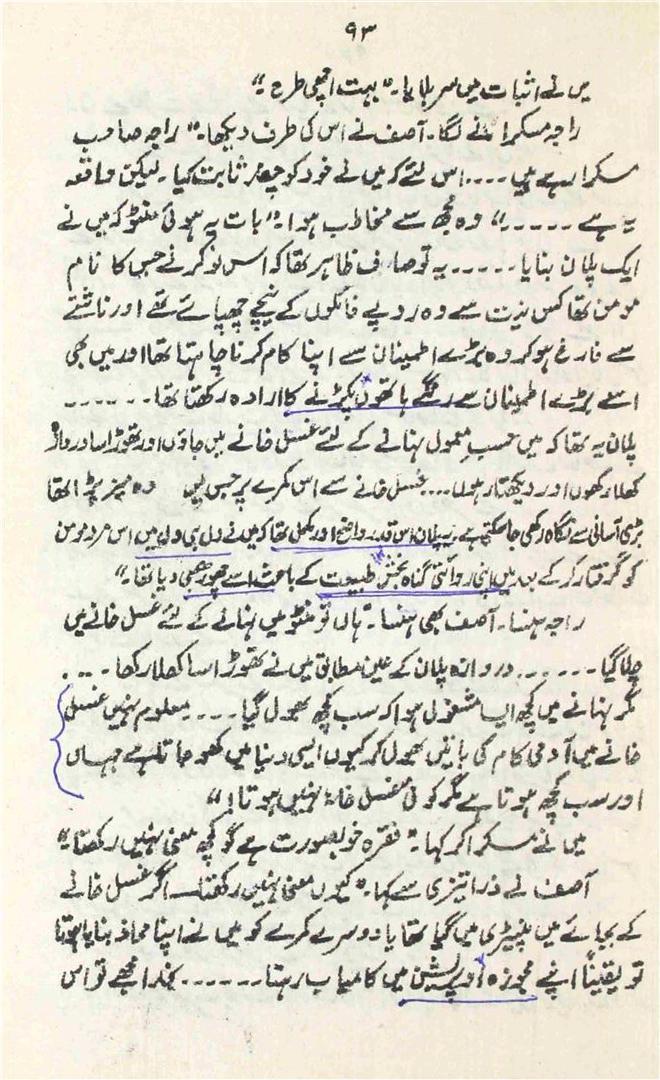 ۹۳
میں نے اثبات میں سر ہلایا۔ "بہت اچھی طرح۔"
راجہ مسکرانے لگا۔ آصف نے اس کی طرف دیکھا۔ "راجہ صاحب
مسکرا رہے ہیں .... اس لئے کہ میں نے خود کو چغد ثابت کیا۔ لیکن واقعہ
یہ ہے ....." وہ مجھ سے مخاطب ہوا۔ "بات یہ ہوئی منٹو کہ میں نے
ایک پلان بنایا ..... یہ تو صاف ظاہر تھا کہ اس نوکر نے جس کا نام
مومن تھا کس نیت سے وہ روپے فائلوں کے نیچے چھپائے تھے اور ناشتے
سے فارغ ہو کر وہ بڑے اطمینان سے اپنا کام کرنا چاہتا تھا اور میں بھی
اسے بڑے اطمینان سے رنگے ہاتھوں پکڑنے کا ارادہ رکھتا تھا ......
پلان یہ تھا کہ میں حسبِ معمول نہانے کے لئے غسل خانے میں جاؤں اور تھوڑا سا دروازہ
کھلا رکھوں اور دیکھتا رہوں .... غسل خانے سے اس کمرے پر جس میں وہ میز پڑا تھا
بڑی آسانی سے نگاہ رکھی جا سکتی ہے۔ یہ پلان اس قدر واضح اور مکمل تھا کہ میں نے دل ہی دل میں اس مرد مومن
کو گرفتار کرنے کے بعد میں اپنی روائتی گناہ بخش طبیعت کے باعث اسے چھوڑ بھی دیا تھا۔"
راجہ ہنسا۔ آصف بھی ہنسا۔ "ہاں تو منٹو میں نہانے کے لئے غسل خانے میں
چلا گیا ...... دروازہ پلان کے عین مطابق میں نے تھوڑا سا کھلا رکھا ....
مگر نہانے میں کچھ ایسا مشغول ہوا کہ سب کچھ بھول گیا .... معلوم نہیں غسل
خانے میں آدمی کام کی باتیں بھول کر کیوں ایسی دنیا میں کھو جاتا ہے جہاں
اور سب کچھ ہوتا ہے مگر کوئی غسل خانہ نہیں ہوتا!"
میں نے مسکرا کر کہا۔ "فقرہ خوبصورت ہے گو کچھ معنی نہیں رکھتا۔"
آصف نے ذرا تیزی سے کہا۔ "کیوں معنی نہیں رکھتا۔ اگر غسل خانے
کے بجائے میں پینٹری میں گیا تھا یا دوسرے کمرے کو میں نے اپنا محاذ بنایا ہوتا
تو یقیناً اپنے مجوزہ اوپریشن میں کامیاب رہتا ...... بخدا مجھے تو اس